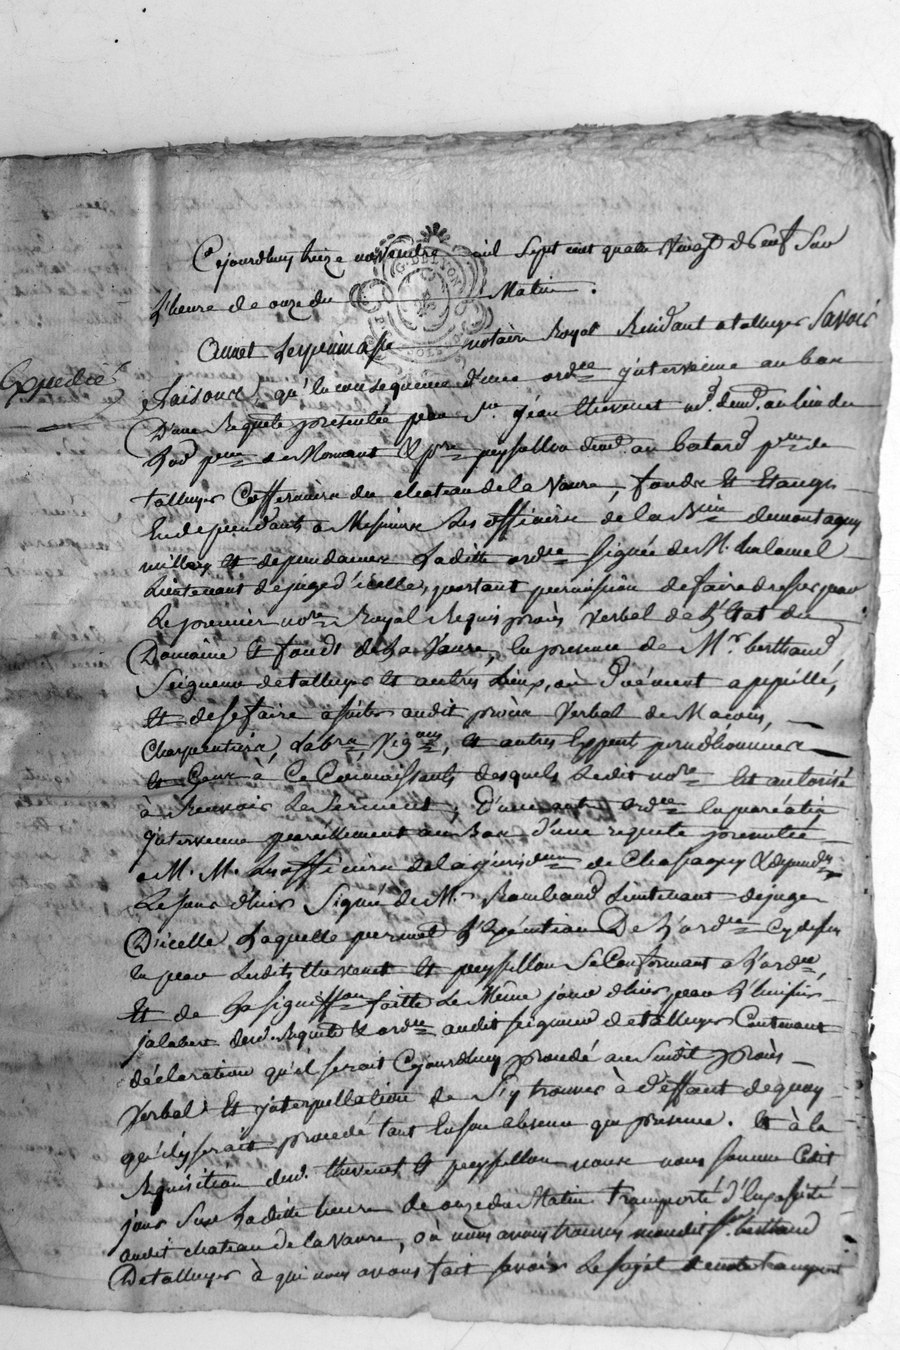 Cejourdhuy treize novembre mil sept cent quatre vingt dix neuf Sur
L'heure de onze du Matin.
G. DE LYON
notaire Royal Residant a talluyer Savoir
Expedié
faisons, qu'en consequence d'une ordce intervenue au bas
D'une Requete présentée par Sr. jean thevenet md. demt. au lieu du
psse de Mornant & pre peyssellon demt. au batard psse de
talluyer Coffermiers du chateau de la Vaure, fonds Et Etangs
En dependants a Messieurs Les officiers de la de montagny
millery Et dependances Laditte ordce signée de M. chalamel
Lieutenant de juge d'icelle, portant permission de faire dresser par
Le premier nore Royal Requis procès Verbal de L'Etat du
Domaine Et fonds de La Vaure, En presence de Mr. berthaud
Seigneur de talluyer Et autres Lieux, ou Duement appellé,
Et de se faire assister audit procès Verbal de Macons,
Charpentiers, Labrs, Vigons, Et autres Expert prudhommes
Et Gens à Ce Connoissants desquels Ledit nore Est autorisé
à Recevoir Le Serment, D'une autre ordce En pareatis
intervenue pareillement au Bas d'une requete presentée
a M. M. Les officiers de la jurisdon de Chassagny & depend
Le jour d'hier Signée de M. Rambaud Lieutenant de juge
D'icelle Laquelle permet L'Execution De L'ordce Cy dessus
En par Lesdits thevenet Et peyssellon Se Conformant a L'ordce,
Et de La signiffon faitte Le Même jour d'hier par L'huissier
jalabert desd. Requete & ordce audit seigneur de talluyer Contenant
déclaration qu'il serait Cejourdhuy procedé au Susdit procès
Verbal Et interpellation de S'y trouver à deffaut de quoy
qu'il y serait procedé tant En son absence que presence. Et à la
Requisition desd. thevenet Et peyssellon nous nous sommes Cedit
jour Sur Laditte heure de onze du Matin transporté
audit chateau de la Vaure, où nous avons trouvé mondit Sr. berthaud
De talluyer à qui nous avons fait savoir Le sujet de notre transport